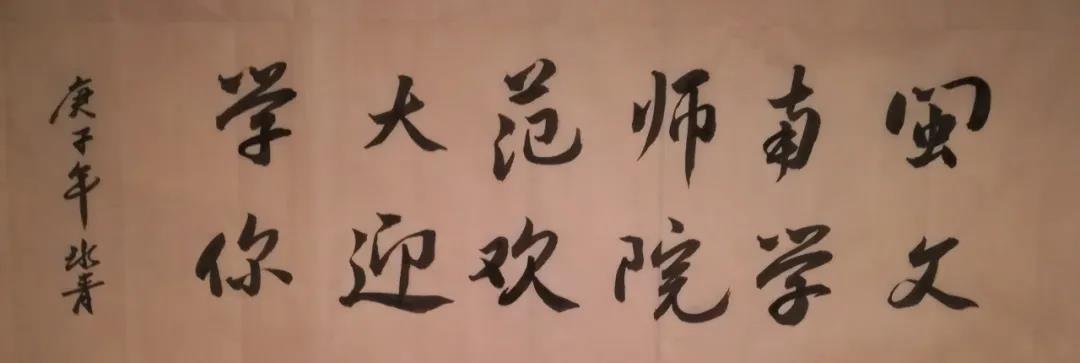 闽南师范大学
文学院欢迎你
庚子年冰青